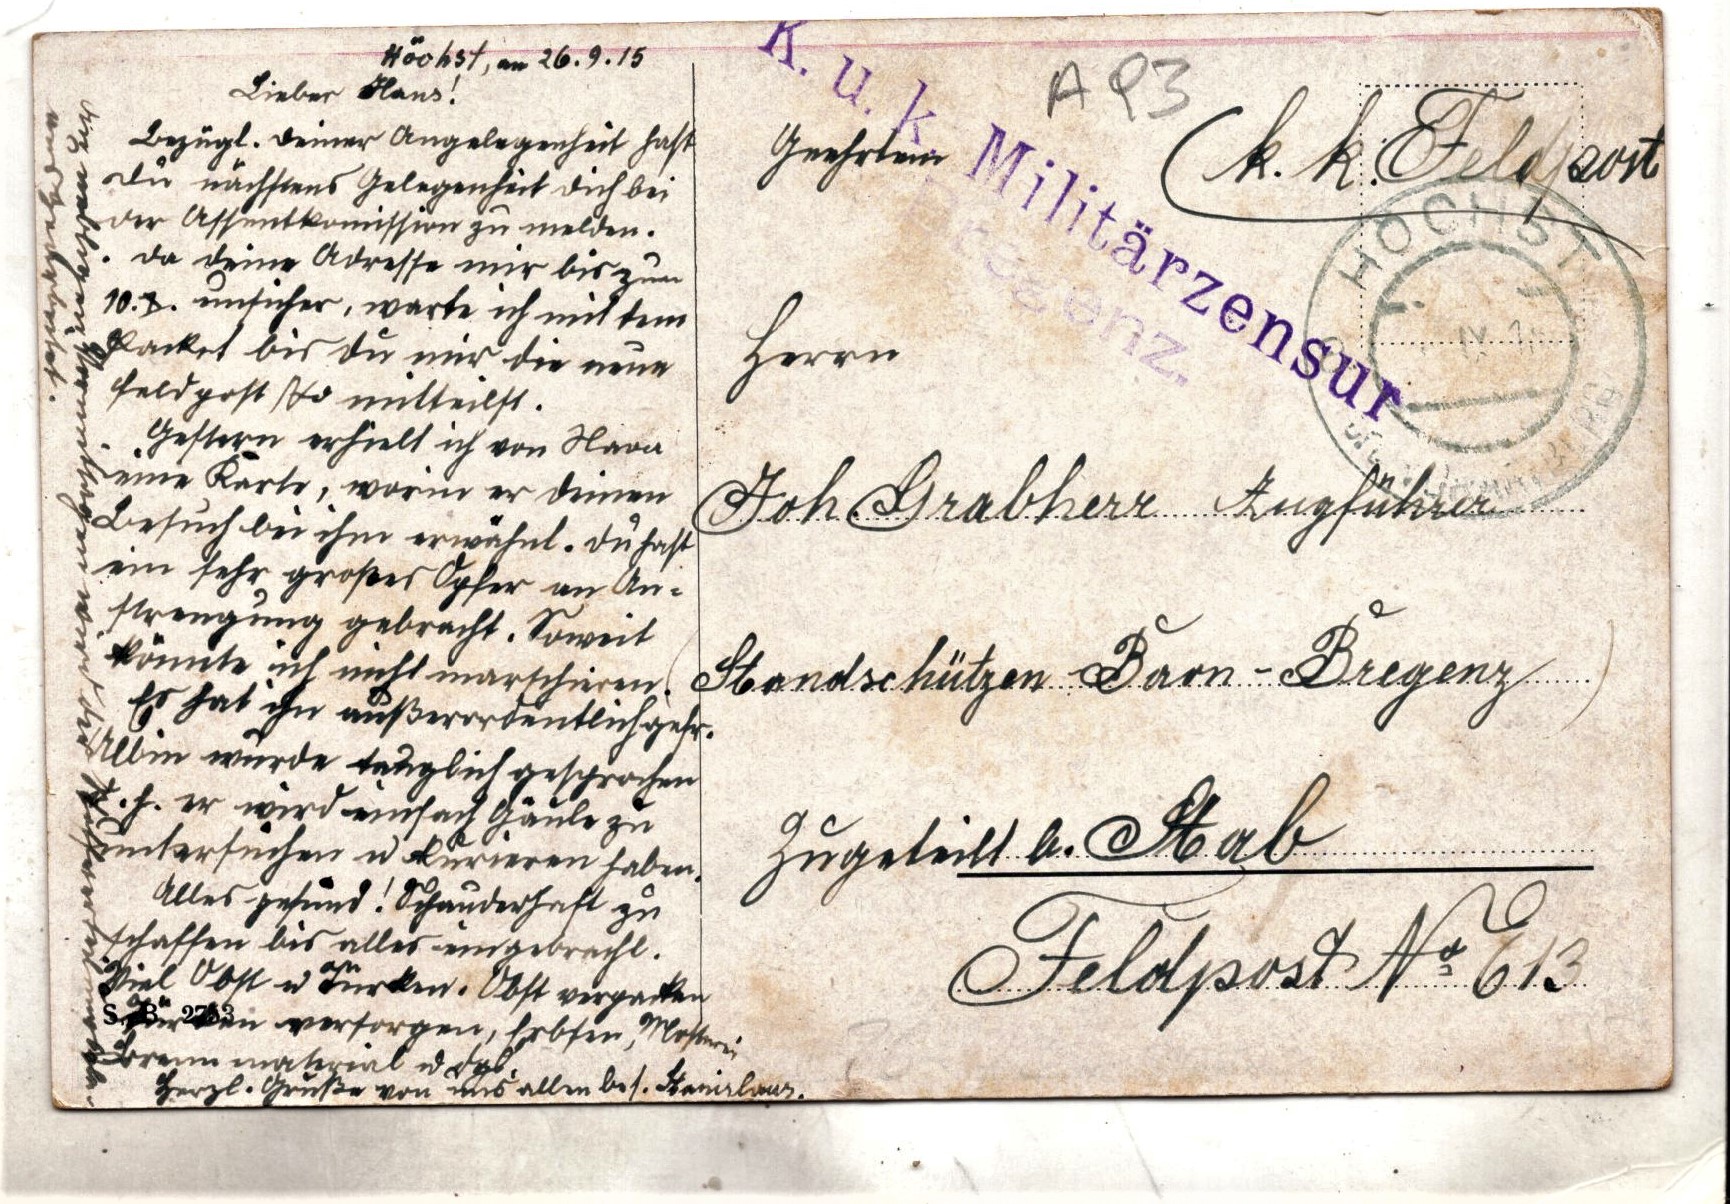 Höchst, am 26.9.15
Lieber Hans!
Bezügl. deiner Angelegenheit hast
Du nächstens Gelegenheit dich bei
der Assentkomission zu melden.
Da deine Adresse mir bis zum
10. unsicher, warte ich mit dem
Packet bis Du mir die neue
Feldpost No mitteilst.
Gestern erhielt ich von
eine Karte, worin er deinen
Besuch bei ihm erwähnt. Du hast
ein sehr großes Opfer an An-
strengung gebracht. Soweit
könnte ich nicht marschieren.
Es hat ihn außerordentlich gefr.
Albin wurde tauglich gesprochen
d.h. er wird einfach Gäule zu
untersuchen u kurieren haben.
Alles gesund! Schauderhaft zu
schaffen bis alles eingebracht.
Viel Obst u Türken. Obst verpacken
Türken versorgen, Erbsen, Mosterei
Brennmaterial u dgl
Herzl. Grüße von uns allen bes. Stanislaus.
und gedörrt
K. u. k. Militärzensur
Bregenz.
A 93
k. k. Feldpost
HÖCHST
IX
Geehrtem
Herrn
Joh. Grabherr Zugsführer
Standschützen-Baon-Bregenz
Zugeteilt b. Stab
Feldpost No 613
S. B 2753